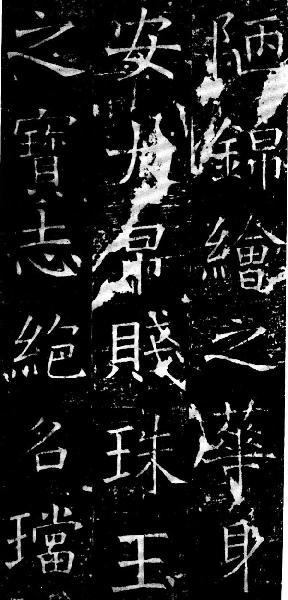 陋錦繪之華身
安大帛賤珠玉
之寶志絕名璫